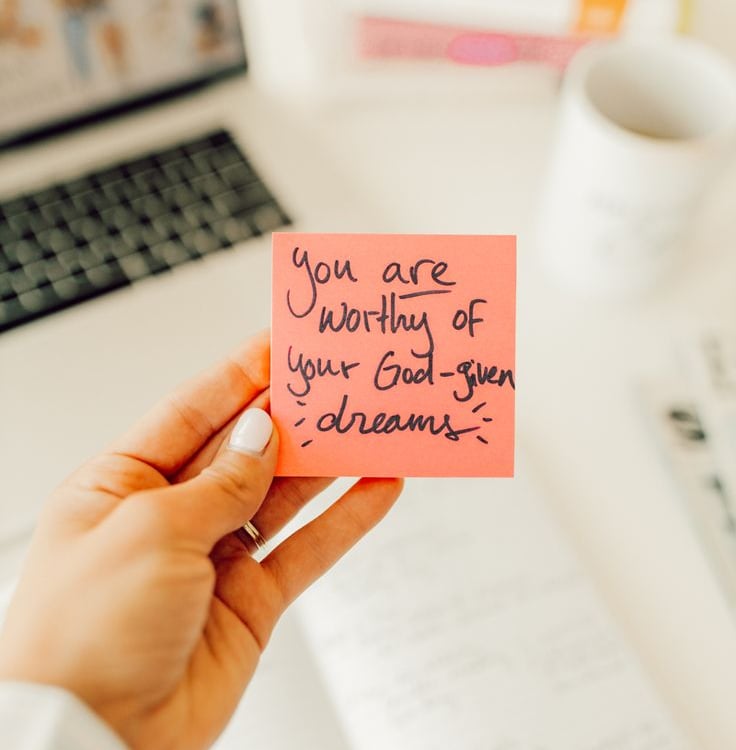 you are
worthy of
your God-given
dreams